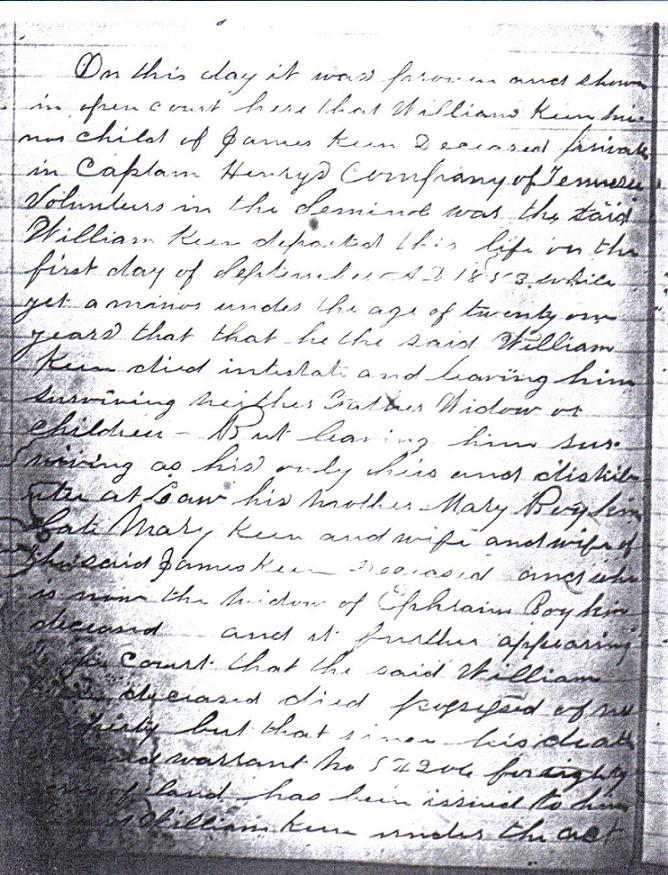 On this day it was proven and shown
in open court here that William Keen mi-
nor child of James Keen Deceased private
in Captam Henrys Company of Tennessee
Volunteers in the Seminole war the said
William Keen departed this life on the
first day of September AD 1853 while
yet a minor under the age of twenty one
years that that he the said William
Keen died intestate and leaving him
surviving neither Father Widow or
children - But leaving him sur-
viving as his only heir and distrib-
utee at Law his mother Mary Boykin
late Mary Keen and wife and wife of
the said James Keen deceased and who
is now the widow of Ephraim Boykin
deceased and it further appearing
to the court that the said William
deceased died possessed of no
but that since his death
warrant No 54206 for eighty
of land has been issued to him
William Keen under the act